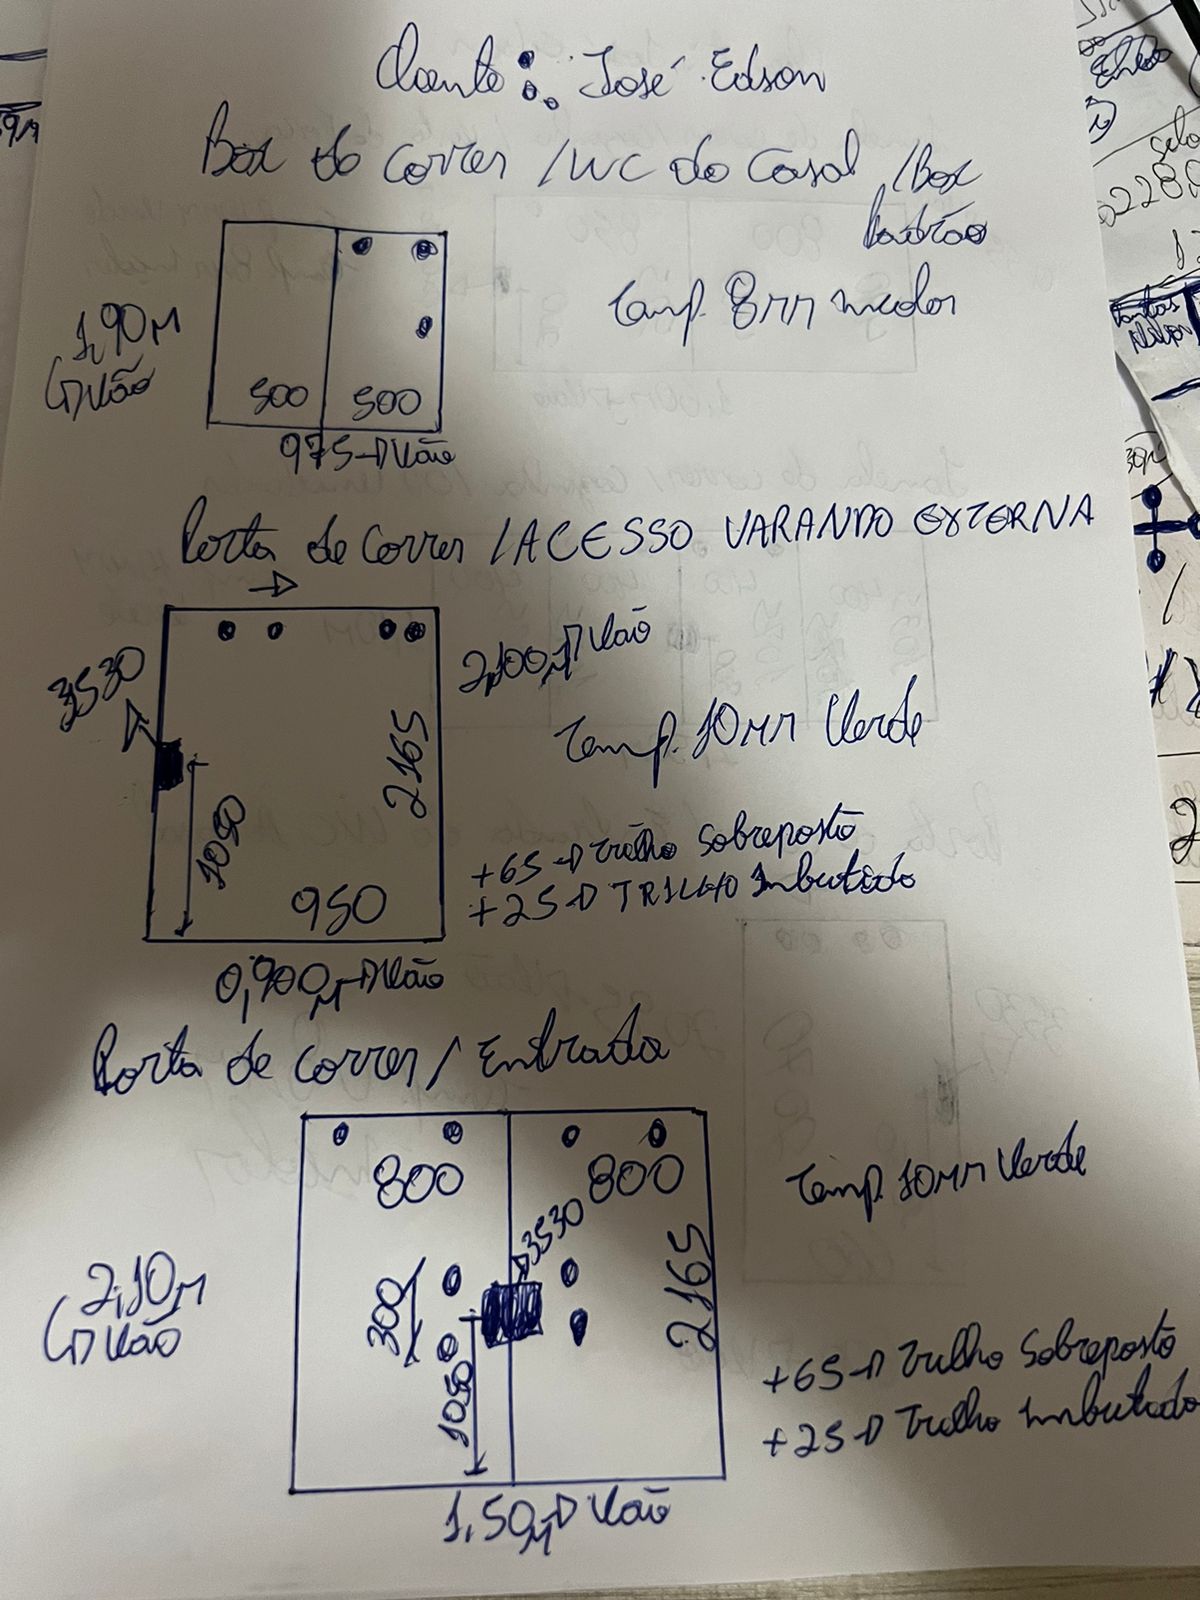 Cliente: José Edson
Box de correr / WC do Casal / Box
Padrão
Temp. 8mm incolor
1,90M
Vão
500 500
975 Vão
Porta de correr / ACESSO VARANDO EXTERNA
→
3530
2,100M Vão
2165
Temp. 10mm Verde
1050
+65 → Trilho Sobreposto
+25 → TRILHO Imbutido
950
0,900M Vão
Porta de correr / Entrada
800 800
Temp. 10mm Verde
3530
2,10M
Vão
300
2165
1050
+65 → Trilho Sobreposto
+25 → Trilho Imbutido
1,50M Vão